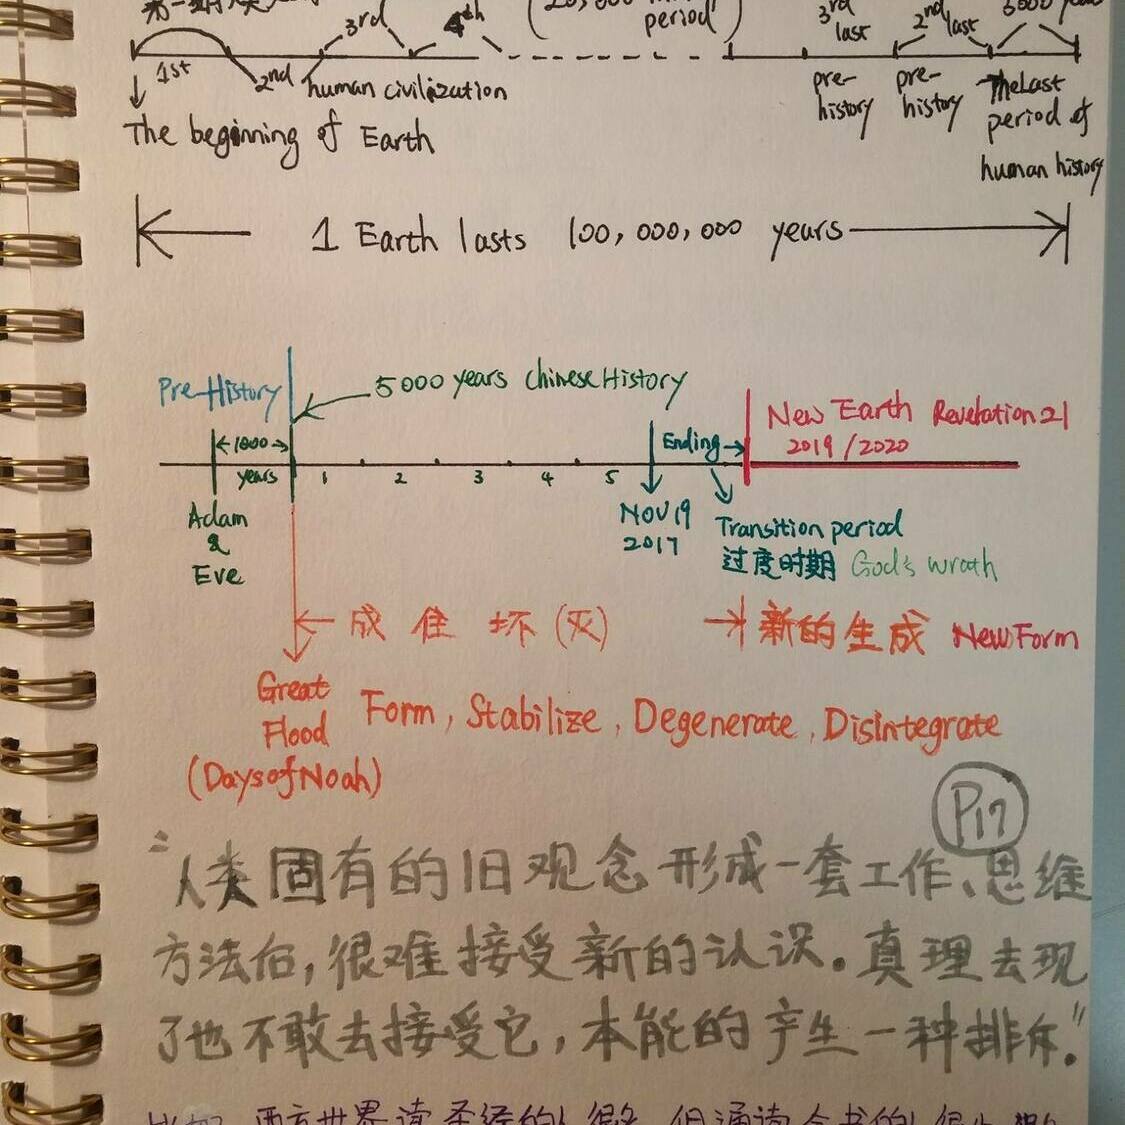 3rd 4th period) 3rd last 2nd last
1st 2nd human civilization pre-history pre-history The Last period of human history
The beginning of Earth
1 Earth lasts 100,000,000 years
Pre-History 5000 years Chinese History
New Earth Revelation 21
2019/2020
1000 years Ending
1 2 3 4 5
Adam & Eve
NOV 19 2017
Transition period
过度时期 God's wrath
成 住 坏 (灭) 新的生成 New Form
Great Flood
(Days of Noah)
Form, Stabilize, Degenerate, Disintegrate
P17
"人类固有的旧观念形成一套工作、思维
方法后,很难接受新的认识。真理去现
了也不敢去接受它,本能的产生一种排斥."
西方世界读圣经的人很多